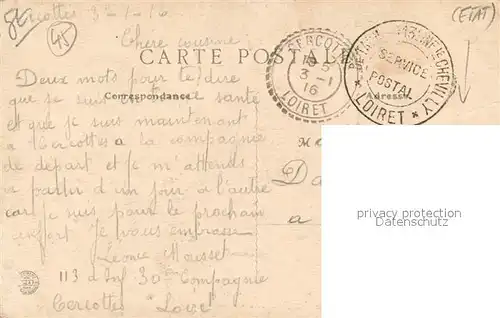 Cercottes 3-1-16
(ETAT)
45
Chère cousine
CARTE POSTALE
CERCOTTES
3 -1
16
LOIRET
SERVICE
POSTAL
CHEVILLY
* LOIRET *
Correspondance
Adresse
Deux mots pour te dire
que je suis santé
et que je suis maintenant
a Cercottes a la compagnie
de départ et je m'attends
a partir d'un jour a l'autre
car je suis pour le prochain
renfort Je vous embrasse
113 d Inf 30e Compagnie
Cercottes "Loiret"
M
D
a
privacy protection
Datenschutz